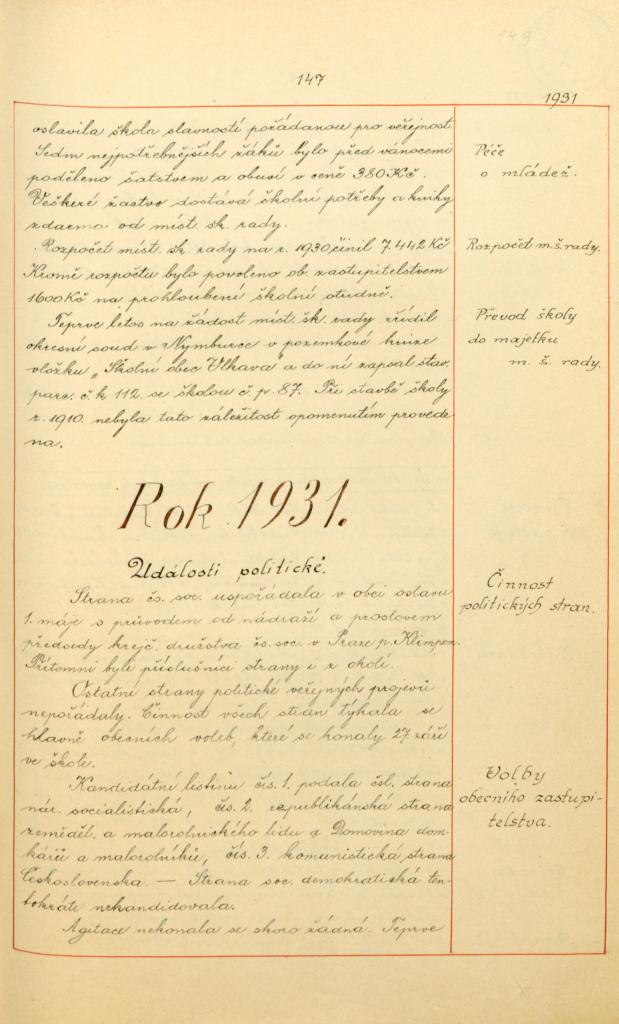 149
147
1931
oslavila škola slavností pořádanou pro veřejnost.
Sedm nejpotřebnějších žáků bylo před vánocemi
poděleno šatstvem a obuví v ceně 380 Kč.
Veškeré žactvo dostává školní potřeby a knihy
zdarma od míst. šk. rady.
Péče
o mládež.
Rozpočet míst. šk. rady na r. 1930 činil 7.442 Kč
Kromě rozpočtu bylo povoleno ob. zastupitelstvem
1600 Kč na prohloubení školní studně.
Rozpočet m. š. rady.
Teprve letos na žádost míst. šk. rady zřídil
okresní soud v Nymburce v pozemkové knize
vložku „Školní obec Vlkava" a do ní zapsal stav.
parc. č. k. 112. se školou č. p. 87. Při stavbě školy
r. 1910. nebyla tato záležitost opomenutím provede
na.
Převod školy
do majetku
m. š. rady.
Rok 1931.
Události politické.
Strana čs. soc. uspořádala v obci oslavu
1. máje s průvodem od nádraží a proslovem
předsedy krejč. družstva čs. soc. v Praze p. Klimpen.
Přítomni byli příslušníci strany i z okolí.
Ostatní strany politické veřejných projevů
nepořádaly. Činnost všech stran týkala se
hlavně obecních voleb, které se konaly 27. září
ve škole.
Činnost
politických stran.
Kandidátní listinu čís. 1. podala čsl. strana
nár. socialistická, čís. 2. republikánská strana
zeměděl. a malorolnického lidu a Domovina dom-
kářů a malorolníků, čís. 3. komunistická strana
Československa. — Strana soc. demokratická ten-
tokráte nekandidovala.
Agitace nekonala se skoro žádná. Teprve
Volby
obecního zastupi-
telstva.